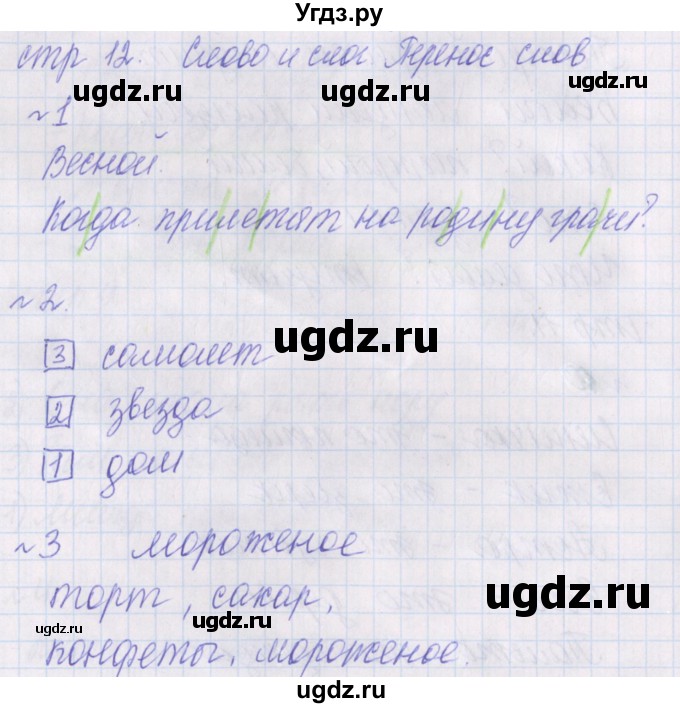 Угдз.ру
стр 12. Слово и слог. Перенос слов
ugdz.ru ugdz.ru ugdz.ru
~ 1
Весной.
Когда прилетят на родину грачи?
~ 2.
ugdz.ru
3 самолет
2 звезда
1 дом
~ 3 мороженое
ugdz.ru
торт, сахар,
ugdz.ru ugdz.ru
конфеты, мороженое.
ugdz.ru